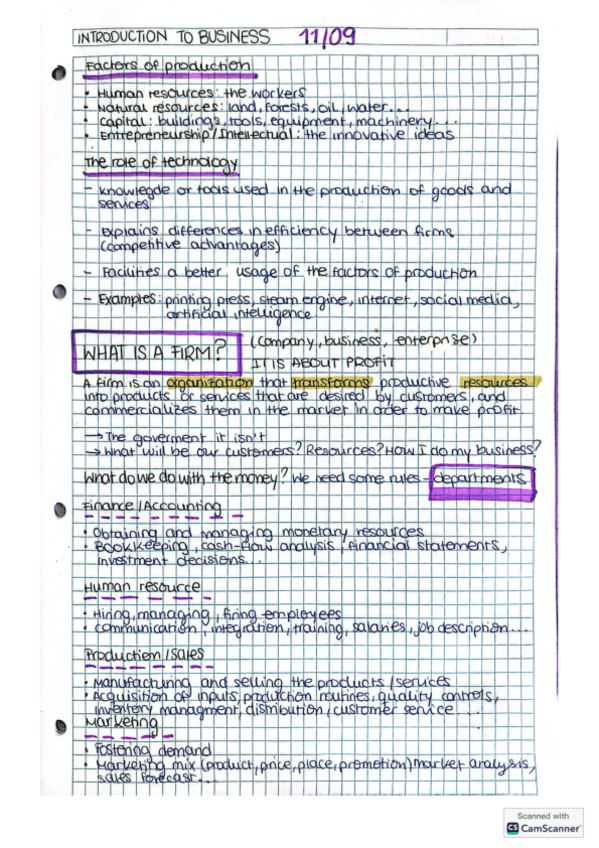 INTRODUCTION TO BUSINESS 11/09
Factors of production
• Human resources: the workers
• Natural resources: land, forests, oil, water...
• Capital: buildings, tools, equipment, machinery...
• Entrepreneurship/Intellectual: the innovative ideas
The role of technology
- Knowlegde or tools used in the production of goods and
services
- Explains differences in efficiency between firms
(competitive advantages)
- Facilities a better usage of the factors of production
- Examples: printing press, steam engine, internet, social media,
artificial intelligence
WHAT IS A FIRM? (company, business, enterprise)
IT IS ABOUT PROFIT
A firm is an organization that transforms productive resources
into products or services that are desired by customers, and
commercializes them in the market in order to make profit.
→ The goverment it isn't
→ What will be our customers? Resources? How I do my business?
What do we do with the money? We need some rules - departments
Finance/Accounting
• Obtaining and managing monetary resources
• Bookkeeping, cash-flow analysis, financial statements,
investment decisions...
Human resource
• Hiring, managing, firing employees
• Communication, integration, training, salaries, job description...
Production/Sales
• Manufacturing and selling the products/services
• Acquisition of inputs, production routines, quality controls,
inventory managment, distribution, customer service...
Marketing
• Fostering demand
• Marketing mix (product, price, place, promotion) market analysis,
sales forecast...
Scanned with
CS CamScanner